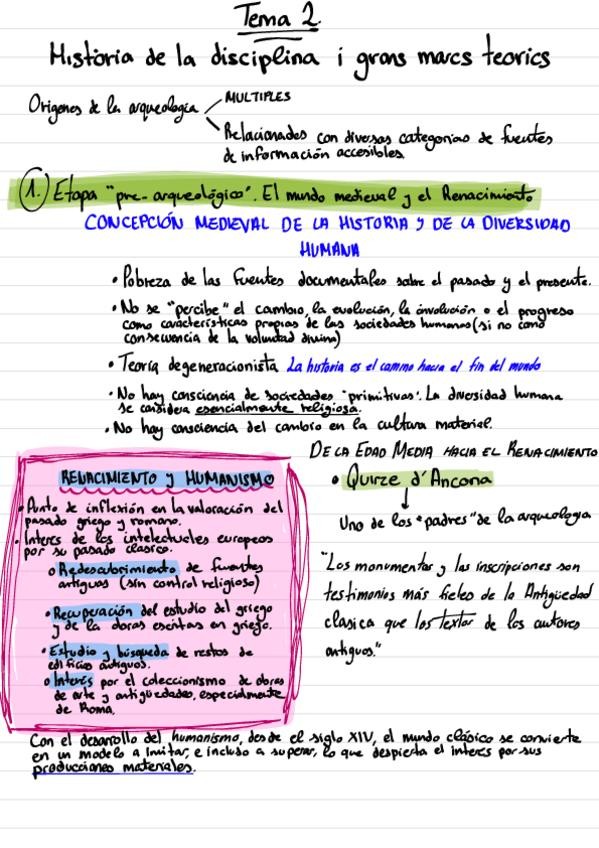 Tema 2.
Història de la disciplina i grans marcs teorics
Origenes de la arqueologia
MULTIPLES
Relacionados con diversas categorias de fuentes
de información accesibles
1. Etapa "pre-arqueológica". El mundo medieval y el Renacimiento
CONCEPCIÓN MEDIEVAL DE LA HISTORIA Y DE LA DIVERSIDAD
HUMANA
• Pobreza de las fuentes documentales sobre el pasado y el presente.
• No se "percibe" el cambio, la evolución, la involución o el progreso
como características propias de las sociedades humanas (si no como
consecuencia de la voluntad divina)
• Teoría degeneracionista La historia es el camino hacia el fin del mundo
• No hay consciencia de sociedades "primitivas". La diversidad humana
se considera esencialmente religiosa.
• No hay consciencia del cambio en la cultura material.
RENACIMIENTO y HUMANISMO
• Punto de inflexión en la valoración del
pasado griego y romano.
• Interes de los intelectuales europeos
por su pasado clasico.
o Redescubrimiento de fuentes
antiguas (sin control religioso)
• Recuperación del estudio del griego
y de la obras escritas en griego.
• Estudio y búsqueda de restos de
edificios antiguos.
o Interés por el coleccionismo de obras
de arte y antigüedades, especialmente
de Roma.
DE LA EDAD MEDIA HACIA EL RENACIMIENTO
• Quirze d'Ancona
Uno de los "padres" de la arqueologia
"Los monumentos y las inscripciones son
testimonios más fieles de la Antigüedad
clasica que los textos de los autores
antiguos."
Con el desarrollo del humanismo, desde el siglo XIV, el mundo clásico se convierte
en un modelo a imitar, e incluso a superar, lo que despierta el interés por sus
producciones materiales.